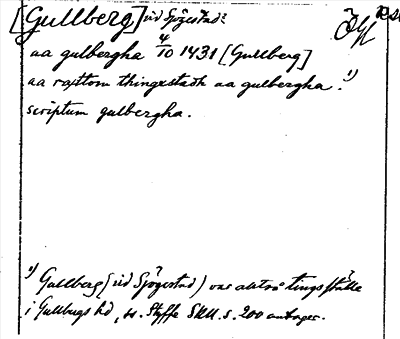 [Gullberg] vid Sjögestad?
Ögl
aa gulbergha 4/10 1431 [Gullberg]
aa rættom thingxstadh aa gulbergha. 1)
scriptum gulbergha.
1) Gullberg (vid Sjögestad) var alltså tingsställe
i Gullbergs hd, ss. Styffe SkU. s. 200 antager.